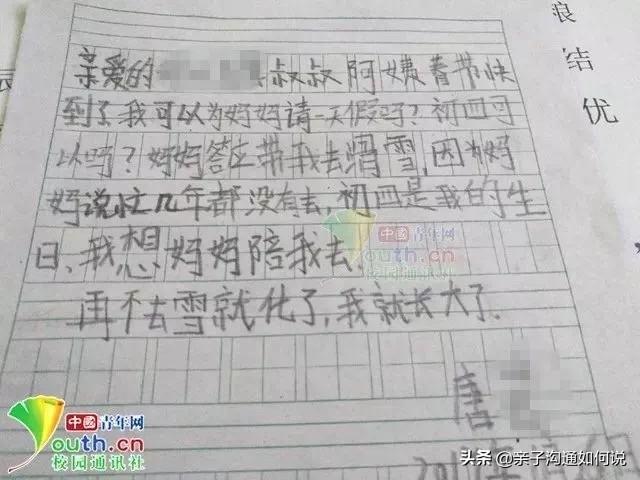 亲爱的
叔叔阿姨春节快
到了我可以为妈妈请一天假吗？初四可
以吗？妈妈答应带我去滑雪，因为妈
妈说忙几年都没有去，初四是我的生
日、我想妈妈陪我去，
再不去雪就化了，我就长大了。
唐
浪
结
优
中國青年网
youth.cn
校园通讯社
中國青年网
youth.cn
校园通讯社
头条 @亲子沟通如何说